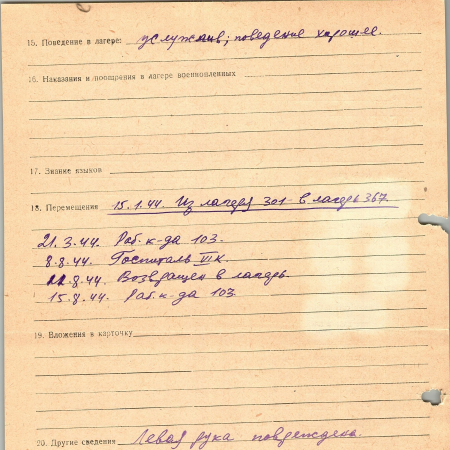 15. Поведение в лагере: услужлив; поведение хорошее.
16. Наказания и поощрения в лагере военнопленных
17. Знание языков
18. Перемещения 15.1.44. Из лагеря 301 в лагерь 367
21.3.44. Раб. к-да 103.
8.8.44. Госпиталь
11.8.44. Возвращен в лагерь.
15.8.44. Раб. к-да 103
19. Вложения в карточку
20. Другие сведения Левая рука повреждена.